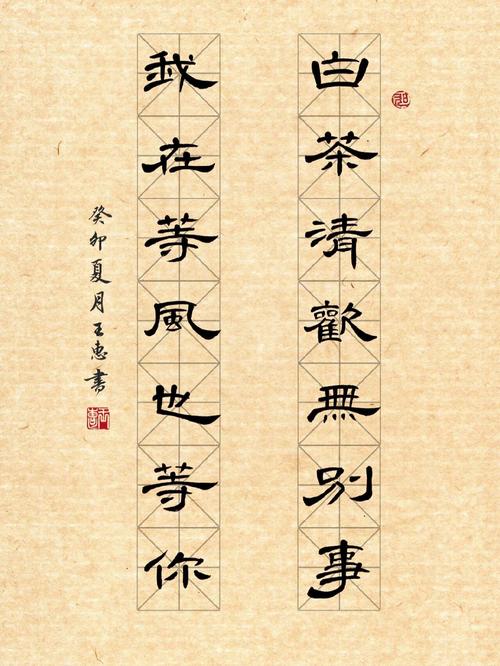 白茶清歡無別事
我在等風也等你
癸卯夏月王惠書